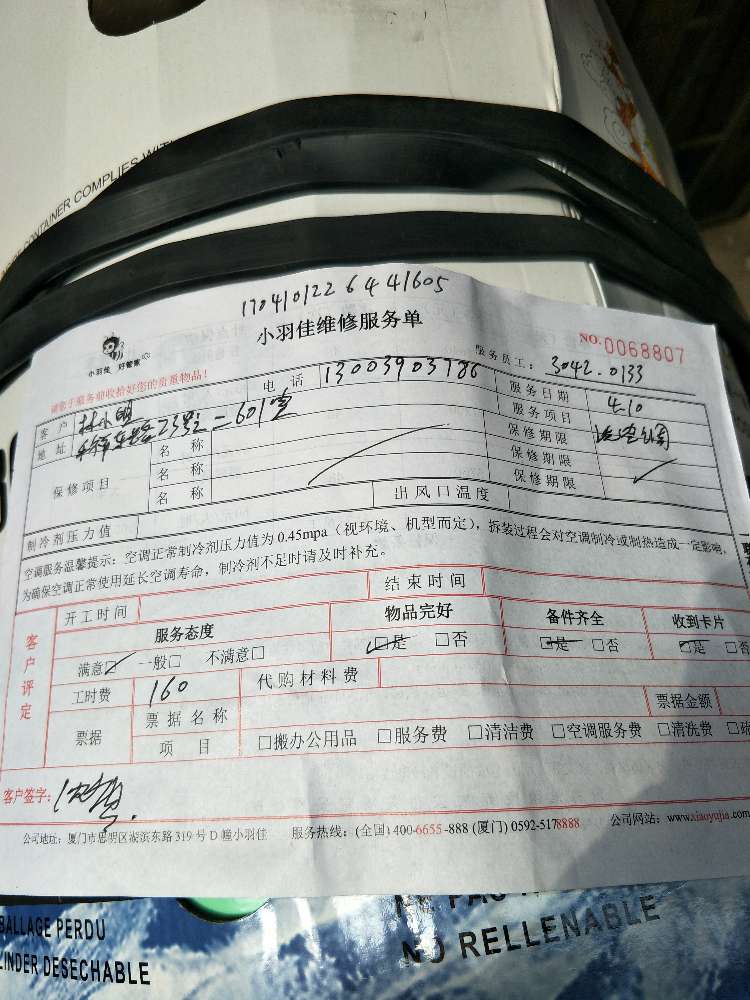 CONTAINER COMPLIES WITH
17041012264 41605
小羽佳维修服务单
小羽佳 好管家
NO.0068807
请您于服务前收拾好您的贵重物品！
服务员工：3042.0133
客户 林小明 电话 13003903786 服务日期 4.10
地址 23号二601室 服务项目
保修项目 名称 保修期限
名称 保修期限
名称 保修期限
制冷剂压力值 出风口温度
空调服务温馨提示：空调正常制冷剂压力值为0.45mpa（视环境、机型而定），拆装过程会对空调制冷或制热造成一定影响，
为确保空调正常使用延长空调寿命，制冷剂不足时请及时补充。
客户评定
开工时间 结束时间
服务态度 物品完好 备件齐全 收到卡片
满意☑ 一般□ 不满意□ ☑是 □否 ☑是 □否 ☑是 □否
工时费 160 代购材料费
票据 票据名称 票据金额
项目 □搬办公用品 □服务费 □清洁费 □空调服务费 □清洗费 □疏
客户签字：
公司地址：厦门市思明区湖滨东路319号D幢小羽佳 服务热线：(全国)400-6655-888 (厦门)0592-5178888 公司网站：www.xiaoyujia.com
BALLAGE PERDU
LINDER DESECHABLE
NO RELLENABLE